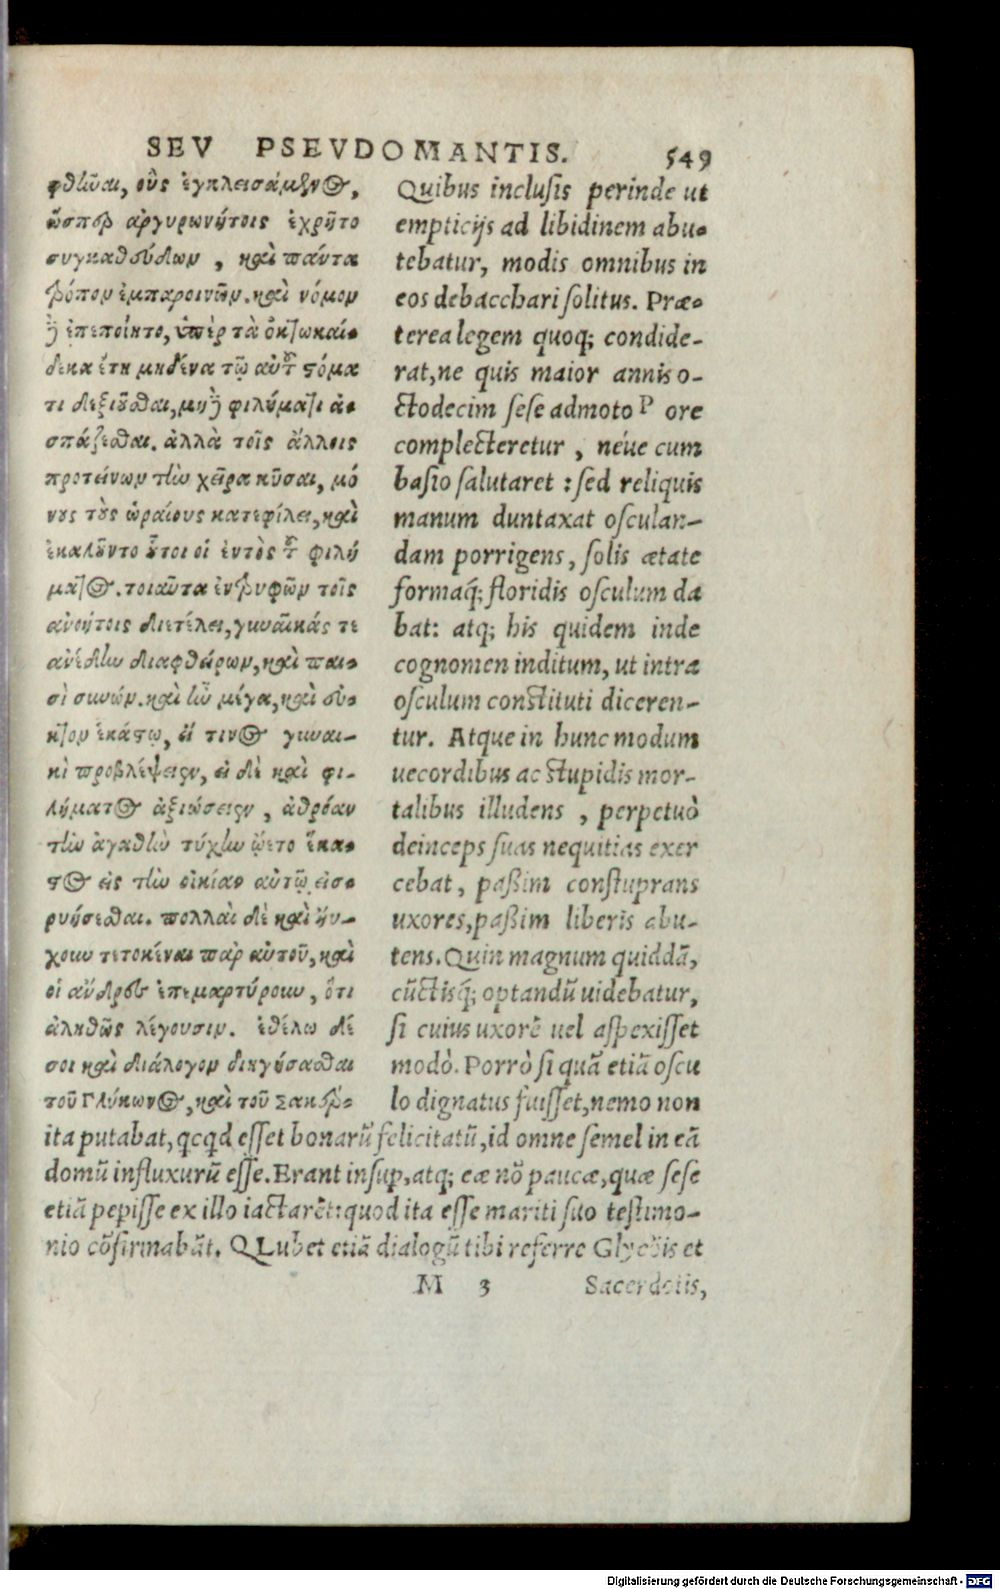 SEV PSEVDOMANTIS. 549
φθῆναι, οὓς ἐγκλεισάμενος,
ὥσπερ ἀργυρωνήτοις ἐχρῆτο
συγκαθεύδων, καὶ πάντα
τρόπον ἐμπαροινῶν. καὶ νόμον
δὲ ἐπεποίητο, ὑπὲρ τὰ ὀκτωκαί-
δεκα ἔτη μηδένα τῷ αὑτοῦ στόμα
τι δεξιοῦσθαι, μηδὲ φιλήματι ἀ-
σπάζεσθαι. ἀλλὰ τοῖς ἄλλοις
προτείνων τὴν χεῖρα κῦσαι, μό
νους τοὺς ὡραίους κατεφίλει, καὶ
ἐκαλοῦντο οὗτοι οἱ ἐντὸς τοῦ φιλή
ματος. τοιαῦτα ἐντρυφῶν τοῖς
ἀνοήτοις διετέλει, γυναῖκάς τε
ἀνέδην διαφθείρων, καὶ παι-
σὶ συνών. καὶ ἦν μέγα, καὶ εὐ-
κτον ἑκάστῳ, εἴ τινος γυναι-
κὶ προβλέψειεν, εἰ δὲ καὶ φι-
λήματος ἀξιώσειεν, ἀθρόαν
τὴν ἀγαθὴν τύχην ᾤετο ἕκα-
στος εἰς τὴν οἰκίαν αὐτῷ εἰσ-
ρυήσεσθαι. πολλαὶ δὲ καὶ ηὔ-
χουν τετοκέναι παρ αὐτοῦ, καὶ
οἱ ἄνδρες ἐπεμαρτύρουν, ὅτι
ἀληθῶς λέγουσιν. ἐθέλω δέ
σοι καὶ διάλογον διηγήσασθαι
τοῦ Γλύκωνος, καὶ τοῦ Σακερ-
Quibus inclusis perinde ut
empticijs ad libidinem abu-
tebatur, modis omnibus in
eos debacchari solitus. Præ-
terea legem quoq; condide-
rat, ne quis maior annis o-
ctodecim sese admoto P ore
complecteretur, néue cum
basio salutaret : sed reliquis
manum duntaxat osculan-
dam porrigens, solis ætate
formaq́; floridis osculum da
bat: atq; his quidem inde
cognomen inditum, ut intra
osculum constituti diceren-
tur. Atque in hunc modum
uecordibus ac stupidis mor-
talibus illudens, perpetuò
deinceps suas nequitias exer
cebat, paßim constuprans
uxores, paßim liberis abu-
tens. Quin magnum quiddã,
cũctisq́; optandũ uidebatur,
si cuius uxorẽ uel aspexisset
modò. Porrò si quã etiã oscu
lo dignatus fuisset, nemo non
ita putabat, qcqd esset bonarũ felicitatũ, id omne semel in eã
domũ influxurũ esse. Erant insup, atq; eæ nõ paucæ, quæ sese
etiã pepisse ex illo iactarẽt: quod ita esse mariti suo testimo-
nio cõfirmabãt. QLubet etiã dialogũ tibi referre Glycõis et
M 3 Sacerdotis,
Digitalisierung gefördert durch die Deutsche Forschungsgemeinschaft - DFG